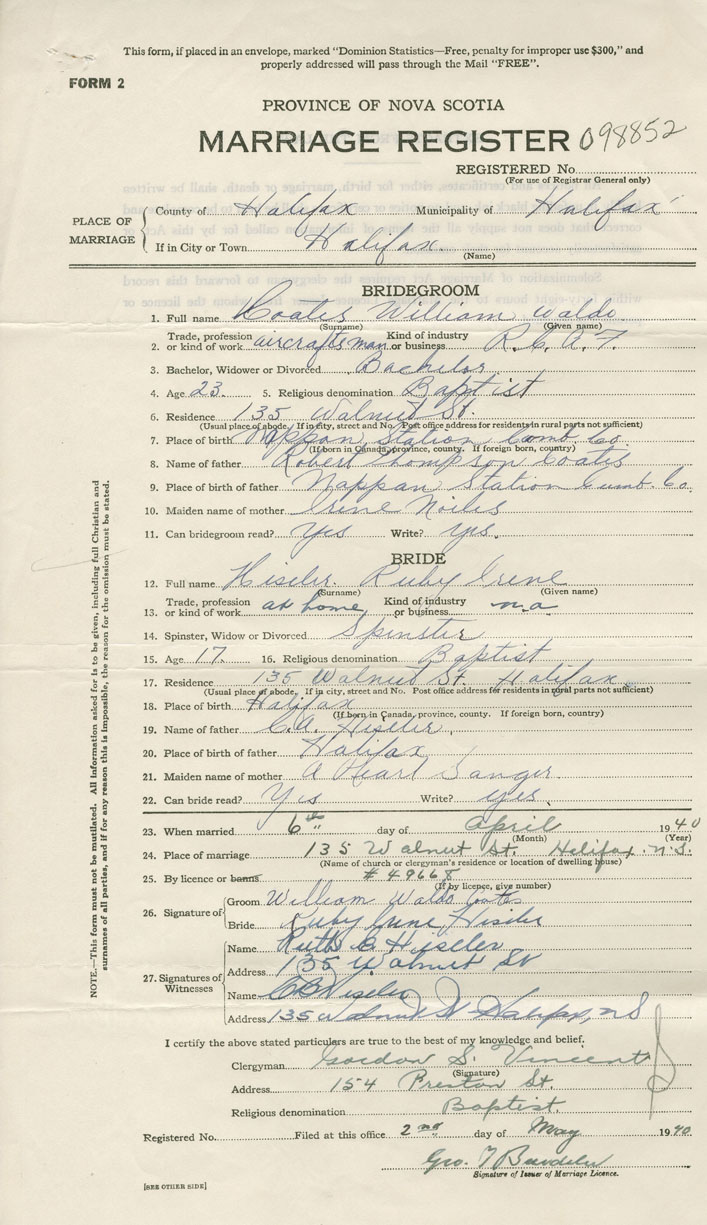 This form, if placed in an envelope, marked "Dominion Statistics—Free, penalty for improper use $300," and
properly addressed will pass through the Mail "FREE".
FORM 2
PROVINCE OF NOVA SCOTIA
MARRIAGE REGISTER 098852
REGISTERED No.
(For use of Registrar General only)
PLACE OF MARRIAGE
County of Halifax Municipality of Halifax
If in City or Town Halifax
(Name)
BRIDEGROOM
1. Full name Coates William Waldo
(Surname) (Given name)
2. Trade, profession or kind of work aircraftsman Kind of industry or business R.C.A.F.
3. Bachelor, Widower or Divorced Bachelor
4. Age 23 5. Religious denomination Baptist
6. Residence 135 Walnut St.
(Usual place of abode. If in city, street and No. Post office address for residents in rural parts not sufficient)
7. Place of birth Nappan Station Cumb. Co
(If born in Canada, province, county. If foreign born, country)
8. Name of father Robert Thompson Coates
9. Place of birth of father Nappan Station Cumb. Co.
10. Maiden name of mother Irene Noiles
11. Can bridegroom read? yes Write? yes.
BRIDE
12. Full name Hiseler Ruby Irene
(Surname) (Given name)
13. Trade, profession or kind of work at home Kind of industry or business n.a
14. Spinster, Widow or Divorced Spinster
15. Age 17 16. Religious denomination Baptist
17. Residence 135 Walnut St. Halifax
(Usual place of abode. If in city, street and No. Post office address for residents in rural parts not sufficient)
18. Place of birth Halifax
(If born in Canada, province, county. If foreign born, country)
19. Name of father C.A. Hiseler
20. Place of birth of father Halifax
21. Maiden name of mother A Pearl Sanger
22. Can bride read? Yes Write? yes
23. When married 6th day of April 1940
(Month) (Year)
24. Place of marriage 135 Walnut St. Halifax. N.S.
(Name of church or clergyman's residence or location of dwelling house)
25. By licence or banns # 49668
(If by licence, give number)
26. Signature of
Groom William Waldo Coates
Bride Ruby Irene Hiseler
27. Signatures of Witnesses
Name Ruth B Hiseler
Address 135 Walnut St
Name C B Hiseler
Address 135 Walnut St Halifax, NS
I certify the above stated particulars are true to the best of my knowledge and belief.
Clergyman Gordon S. Vincent
(Signature)
Address 154 Preston St.
Religious denomination Baptist.
Registered No. Filed at this office 2nd day of May 1940
Geo. T
Signature of Issuer of Marriage Licence.
[SEE OTHER SIDE]
NOTE.—This form must not be mutilated. All information asked for is to be given, including full Christian and
surnames of all parties, and if for any reason this is impossible, the reason for the omission must be stated.